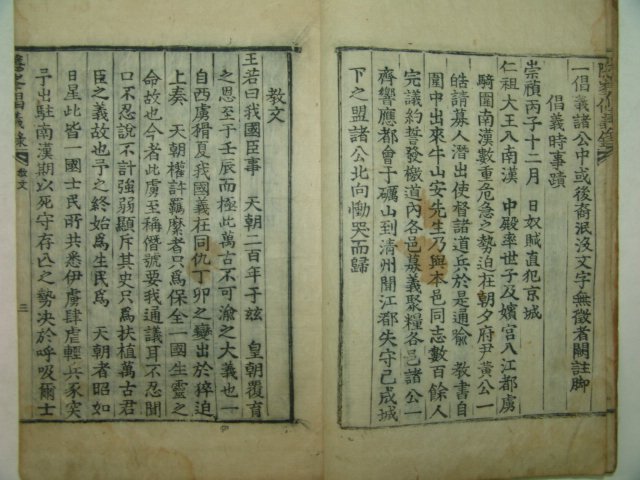 一倡義諸公中或後裔泯沒文字無徵者闕註脚
倡義時事蹟
崇禎丙子十二月 日奴賊直犯京城
仁祖大王入南漢 中殿率世子及嬪宮入江都虜
騎圍南漢數重危急之勢迫在朝夕府尹黃公一
皓請募人潛出使督諸道兵於是通諭 教書自
圍中出來牛山安先生乃與本邑同志數百餘人
完議約誓發檄道內各邑募義聚糧各邑諸公一
齊響應都會于礪山到淸州聞江都失守已成城
下之盟諸公北向慟哭而歸
教文
王若曰我國臣事 天朝二百年于玆 皇朝覆育
之恩至于壬辰而極此萬古不可渝之大義也一
自西虜猾夏我國義在同仇丁卯之變出於猝迫
上奏 天朝權許羈縻者只爲保全一國生靈之
命故也今者此虜至稱僭號要我通議耳不忍聞
口不忍說不計强弱顯斥其史只爲扶植萬古君
臣之義故也予之終始爲生民爲 天朝者昭如
日星此皆一國士民所共悉伊虜肆虐輕兵豕突
予出駐南漢期以死守存亡之勢決於呼吸爾士
倡義錄 教文 三